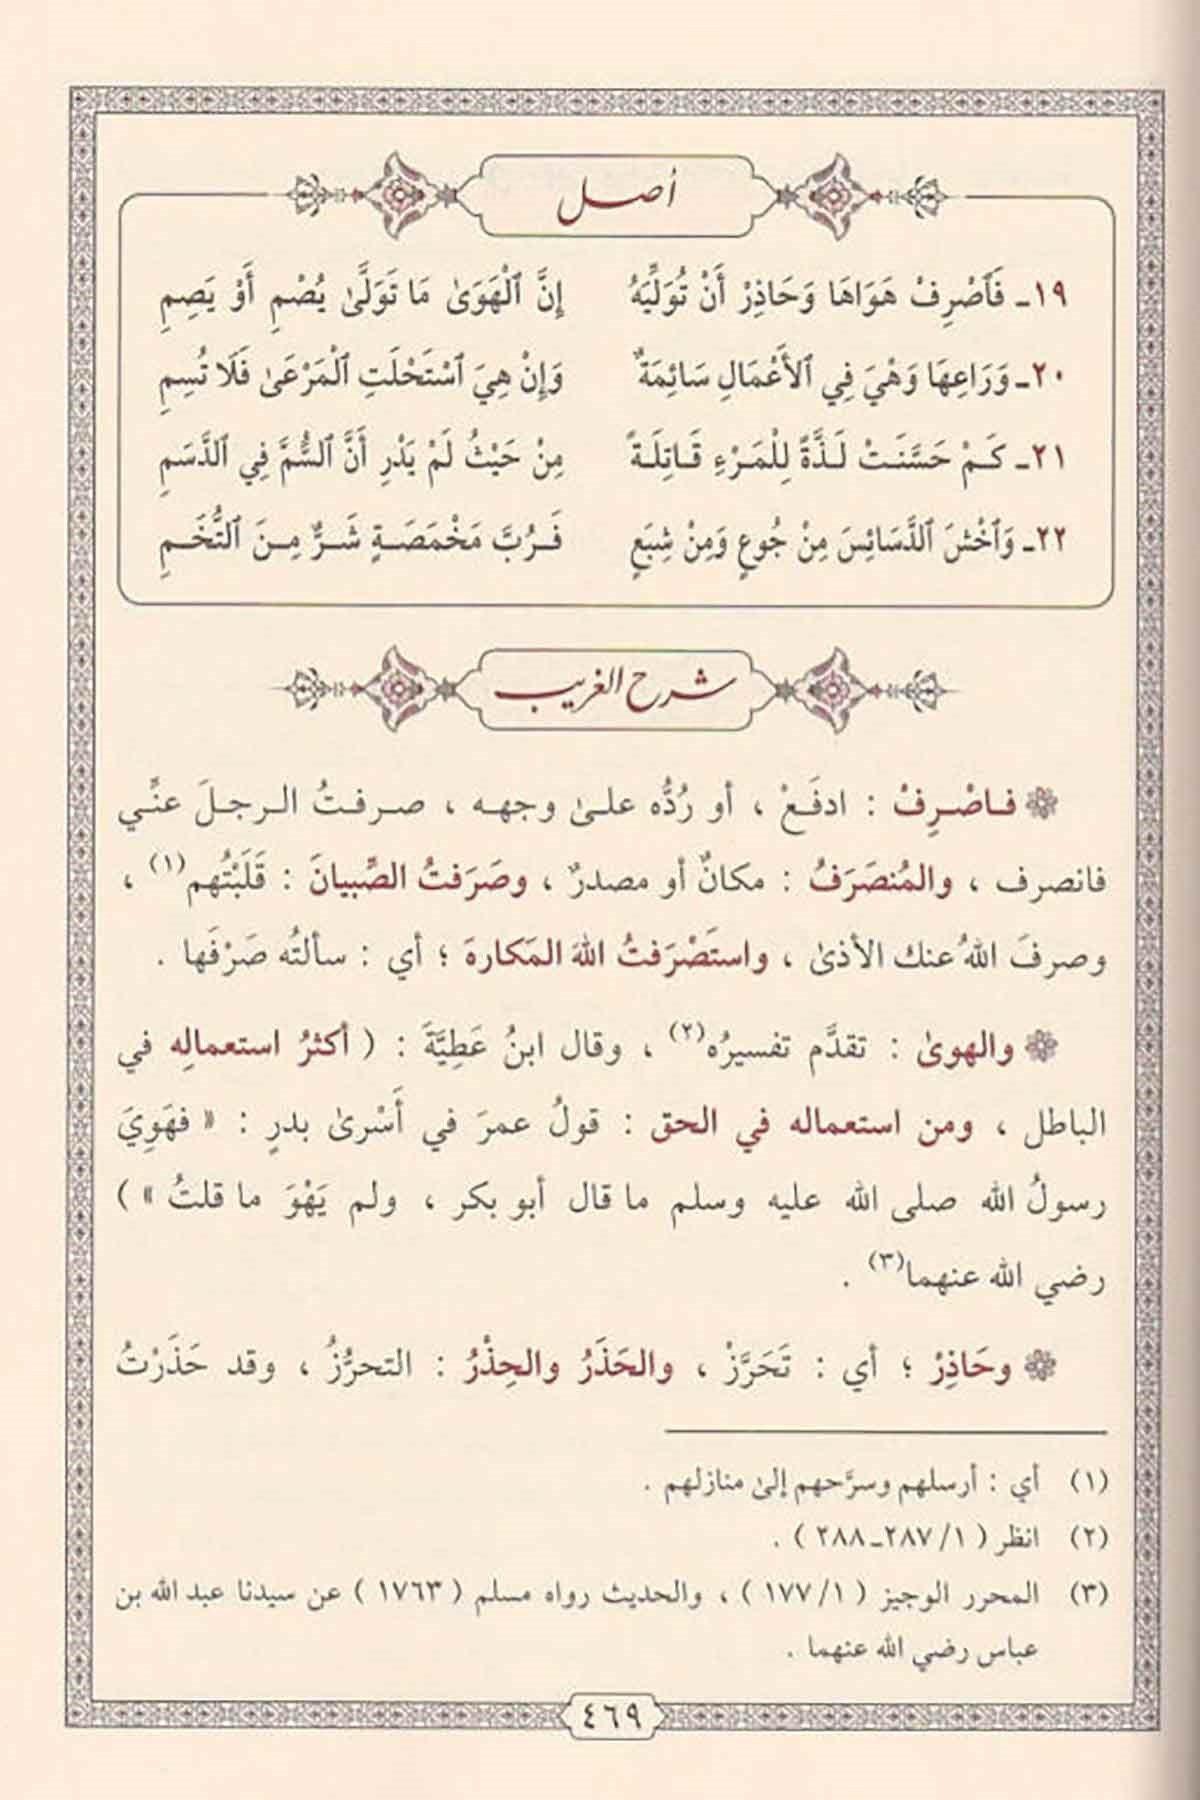 أصل
١٩ـ فَٱصْرِفْ هَوَاهَا وَحَاذِرْ أَنْ تُوَلِّيَهُ إِنَّ ٱلْهَوَىٰ مَا تَوَلَّىٰ يُصْمِ أَوْ يَصِمِ
٢٠ـ وَرَاعِهَا وَهْيَ فِي ٱلأَعْمَالِ سَائِمَةٌ وَإِنْ هِيَ ٱسْتَحْلَتِ ٱلْمَرْعَىٰ فَلَا تُسِمِ
٢١ـ كَمْ حَسَّنَتْ لَذَّةً لِلْمَرْءِ قَاتِلَةً مِنْ حَيْثُ لَمْ يَدْرِ أَنَّ ٱلسُّمَّ فِي ٱلدَّسَمِ
٢٢ـ وَٱخْشَ ٱلدَّسَائِسَ مِنْ جُوعٍ وَمِنْ شِبَعٍ فَرُبَّ مَخْمَصَةٍ شَرٌّ مِنَ ٱلتُّخَمِ
شرح الغريب
فاصْرِفْ : ادفَعْ ، أو رُدُّه علىٰ وجهه ، صرفتُ الرجلَ عنِّي
فانصرف ، والمُنصَرَفُ : مكانٌ أو مصدرٌ ، وصَرَفتُ الصِّبيانَ : قَلَبْتُهم(١) ،
وصرفَ اللهُ عنك الأذىٰ ، واستَصْرَفتُ اللهَ المَكارهَ ؛ أي : سألتُه صَرْفَها .
والهوىٰ : تقدَّم تفسيرُه(٢) ، وقال ابنُ عَطِيَّةَ : ( أكثرُ استعمالِه في
الباطل ، ومن استعماله في الحق : قولُ عمرَ في أَسْرىٰ بدرٍ : « فهَوِيَ
رسولُ الله صلى الله عليه وسلم ما قال أبو بكر ، ولم يَهْوَ ما قلتُ » )
رضي الله عنهما(٣) .
وحَاذِرْ ؛ أي : تَحَرَّزْ ، والحَذَرُ والحِذْرُ : التحرُّزُ ، وقد حَذَرْتُ
(١) أي : أرسلهم وسرَّحهم إلىٰ منازلهم .
(٢) انظر ( ١/ ٢٨٧ـ ٢٨٨ ) .
(٣) المحرر الوجيز ( ١/ ١٧٧ ) ، والحديث رواه مسلم ( ١٧٦٣ ) عن سيدنا عبد الله بن
عباس رضي الله عنهما .
٤٦٩